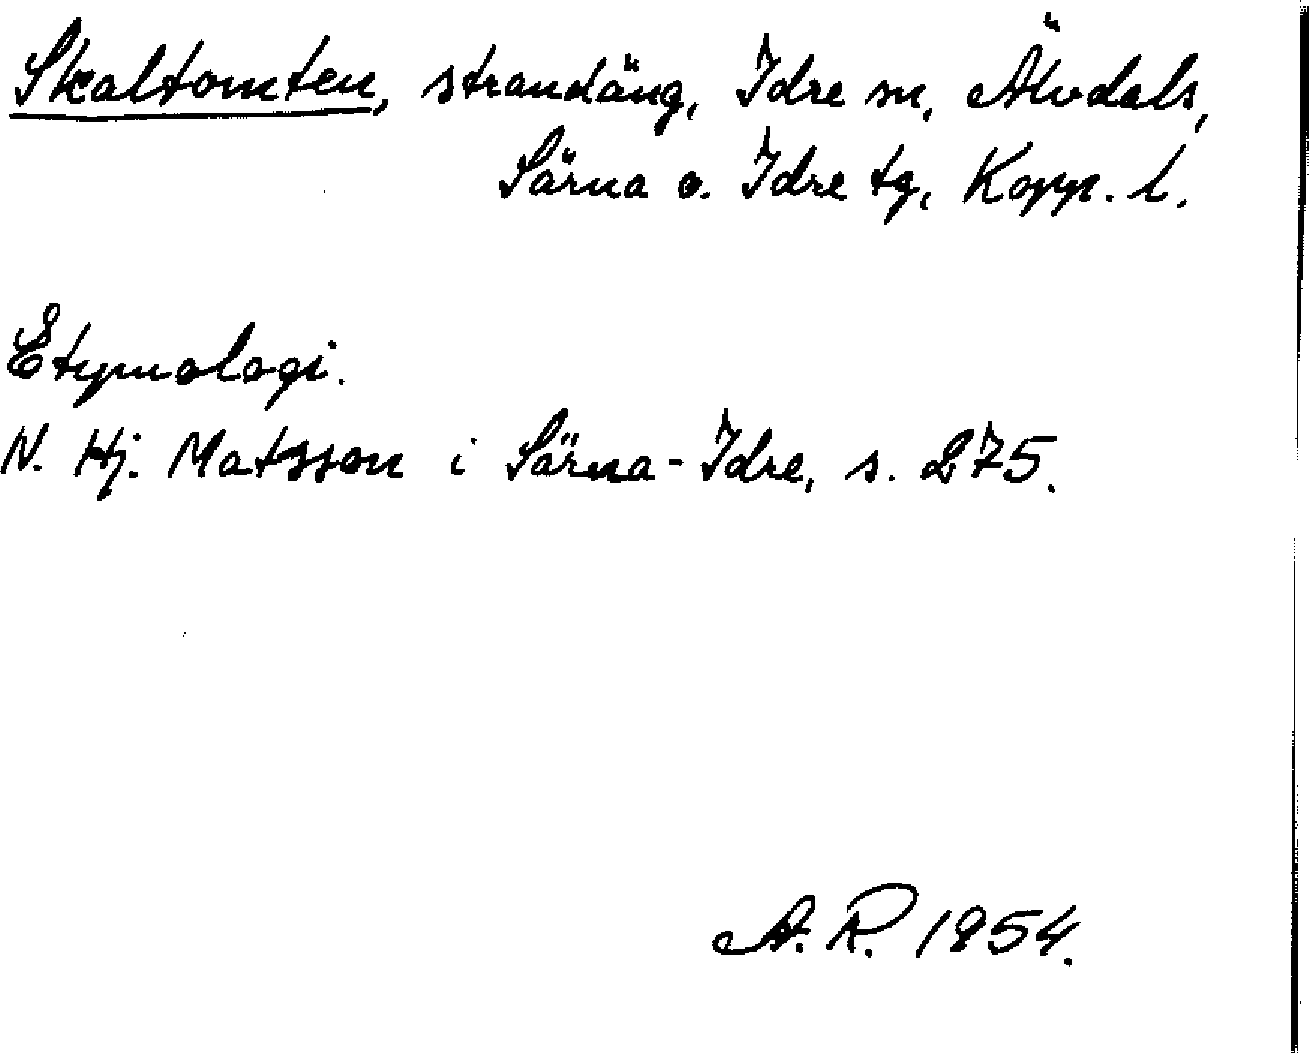 Skaltomten, strandäng, Idre sn, Älvdals,
Särna o. Idre tg, Kopp. l.
Etymologi.
N. Hj. Matsson i Särna-Idre, s. 275.
A. R. 1954.